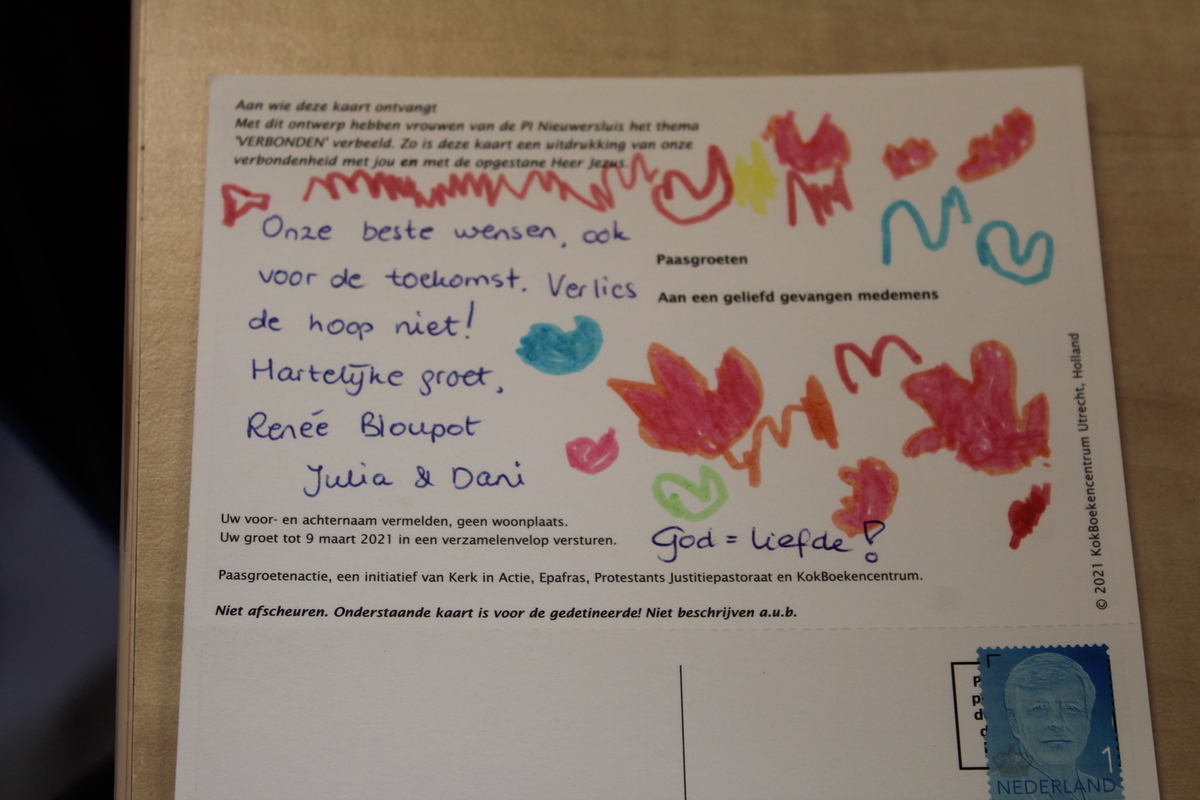 Aan wie deze kaart ontvangt
Met dit ontwerp hebben vrouwen van de PI Nieuwersluis het thema
'VERBONDEN' verbeeld. Zo is deze kaart een uitdrukking van onze
verbondenheid met jou en met de opgestane Heer Jezus.
Onze beste wensen, ook
voor de toekomst. Verlies
de hoop niet!
Hartelijke groet,
Renée Bloupot
Julia & Dani
Paasgroeten
Aan een geliefd gevangen medemens
God = liefde!
Uw voor- en achternaam vermelden, geen woonplaats.
Uw groet tot 9 maart 2021 in een verzamelenvelop versturen.
Paasgroetenactie, een initiatief van Kerk in Actie, Epafras, Protestants Justitiepastoraat en KokBoekencentrum.
Niet afscheuren. Onderstaande kaart is voor de gedetineerde! Niet beschrijven a.u.b.
© 2021 KokBoekencentrum Utrecht, Holland
1
NEDERLAND